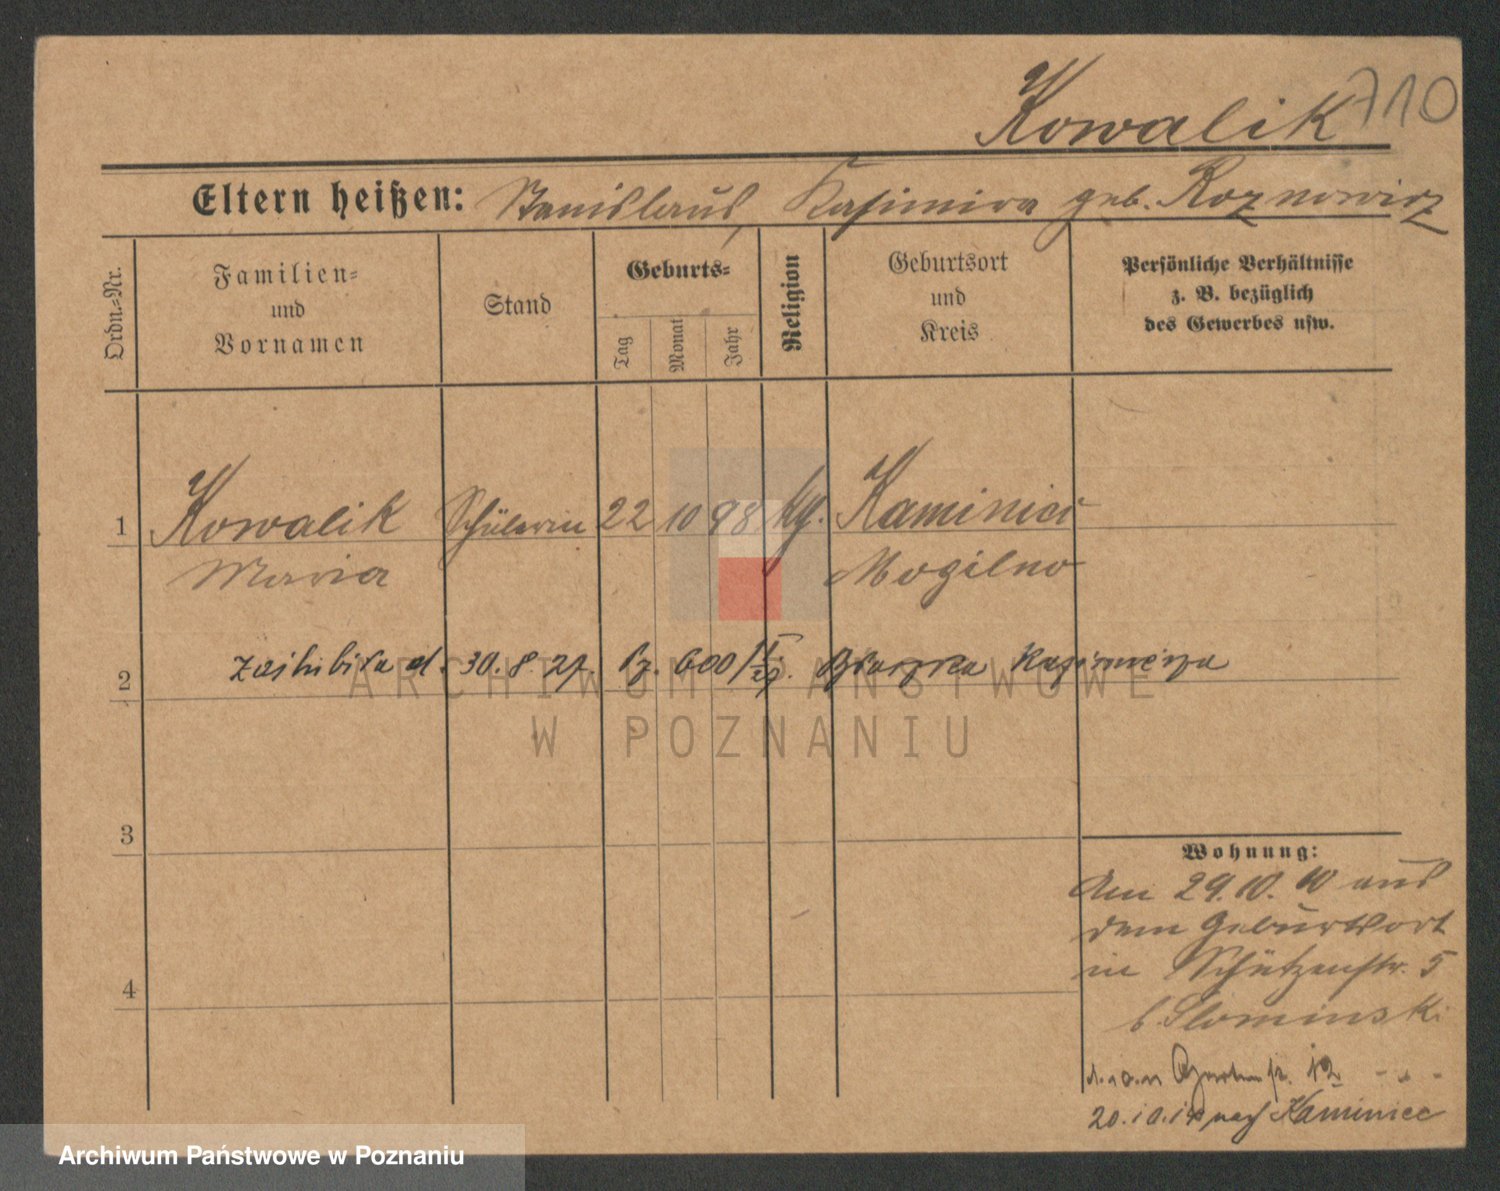 Kowalik 710
Eltern heißen: Stanislaus, Kasimira geb. Roznowicz
Ordn.=Nr.
Familien=
und
Vornamen
Stand
Geburts=
Tag
Monat
Jahr
Religion
Geburtsort
und
Kreis
Persönliche Verhältnisse
z. B. bezüglich
des Gewerbes usw.
1 Kowalik Schülerin 22 10 98 kg. Kaminiec
Maria Mogilno
2 zaślubiła d. 30. 8. 27. 600 Kazimierza
ARCHIWUM PAŃSTWOWE
W POZNANIU
3
Wohnung:
Am 29.10.10 aus
dem Geburtsort
in Schützenstr. 5
b. Slominski
4
12
20. nach Kaminiec
Archiwum Państwowe w Poznaniu